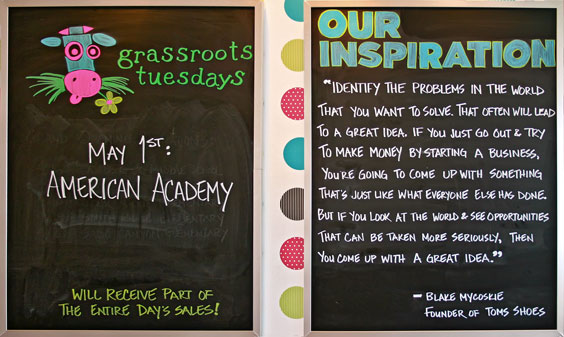 grassroots
tuesdays
MAY 1ST:
AMERICAN ACADEMY
WILL RECEIVE PART OF
THE ENTIRE DAY'S SALES!
OUR
INSPIRATION
"IDENTIFY THE PROBLEMS IN THE WORLD
THAT YOU WANT TO SOLVE. THAT OFTEN WILL LEAD
TO A GREAT IDEA. IF YOU JUST GO OUT & TRY
TO MAKE MONEY BY STARTING A BUSINESS,
YOU'RE GOING TO COME UP WITH SOMETHING
THAT'S JUST LIKE WHAT EVERYONE ELSE HAS DONE.
BUT IF YOU LOOK AT THE WORLD & SEE OPPORTUNITIES
THAT CAN BE TAKEN MORE SERIOUSLY, THEN
YOU COME UP WITH A GREAT IDEA."
- BLAKE MYCOSKIE
FOUNDER OF TOMS SHOES